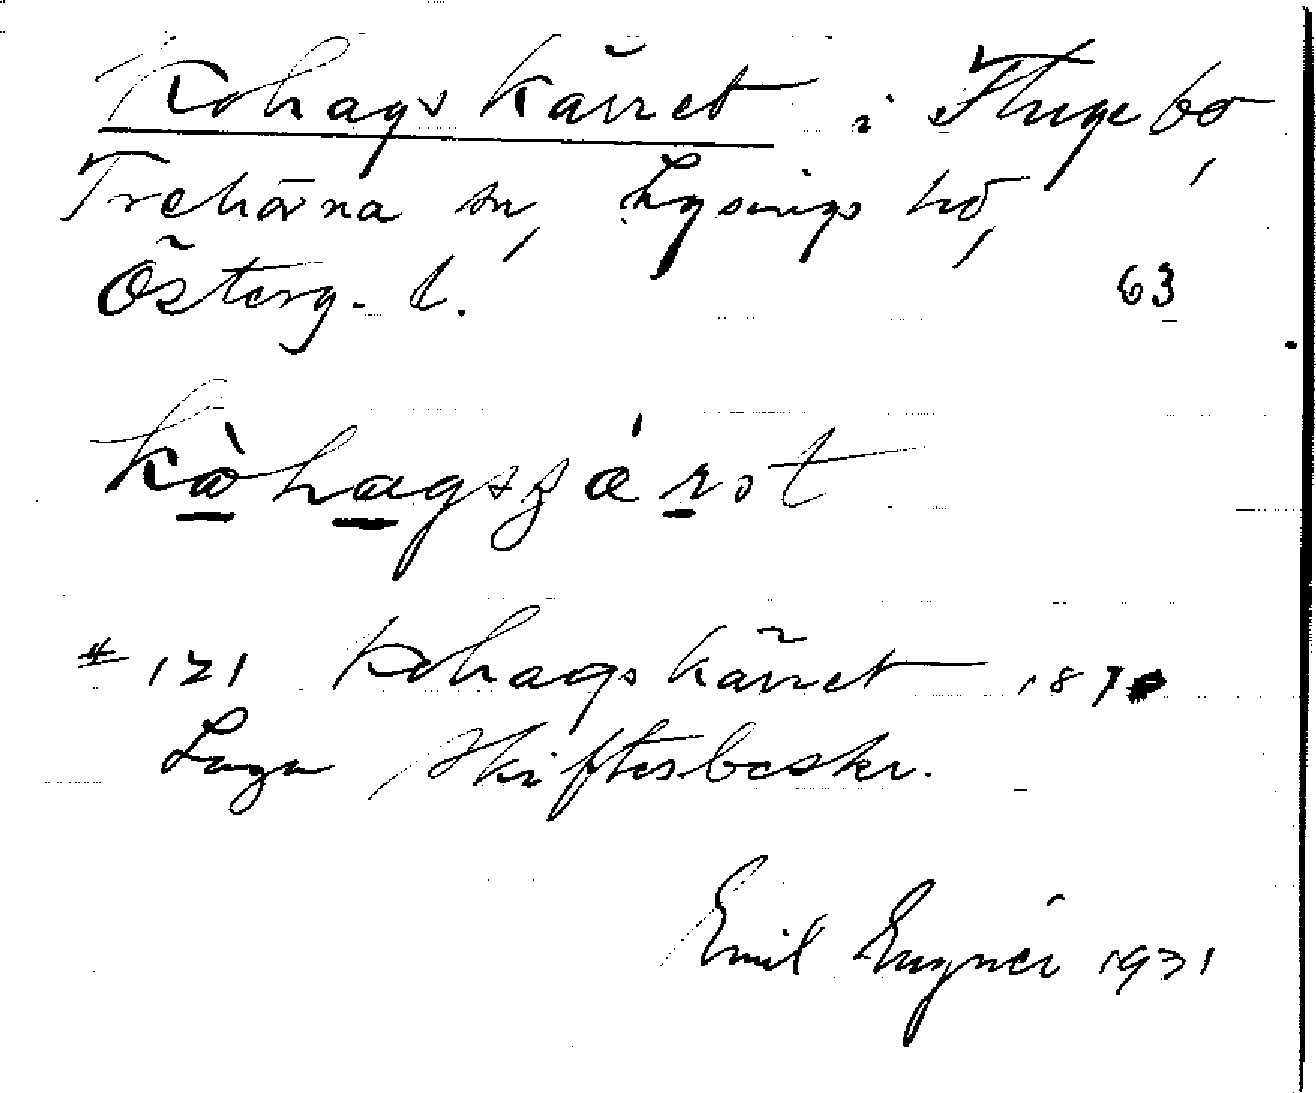 Kohagskärret i Flugebo,
Trehörna sn, Lysings hd,
Österg. l.
63
kòhagszárst
# 121 Kohagskärret 187
Laga Skiftesbeskr.
Emil 1931